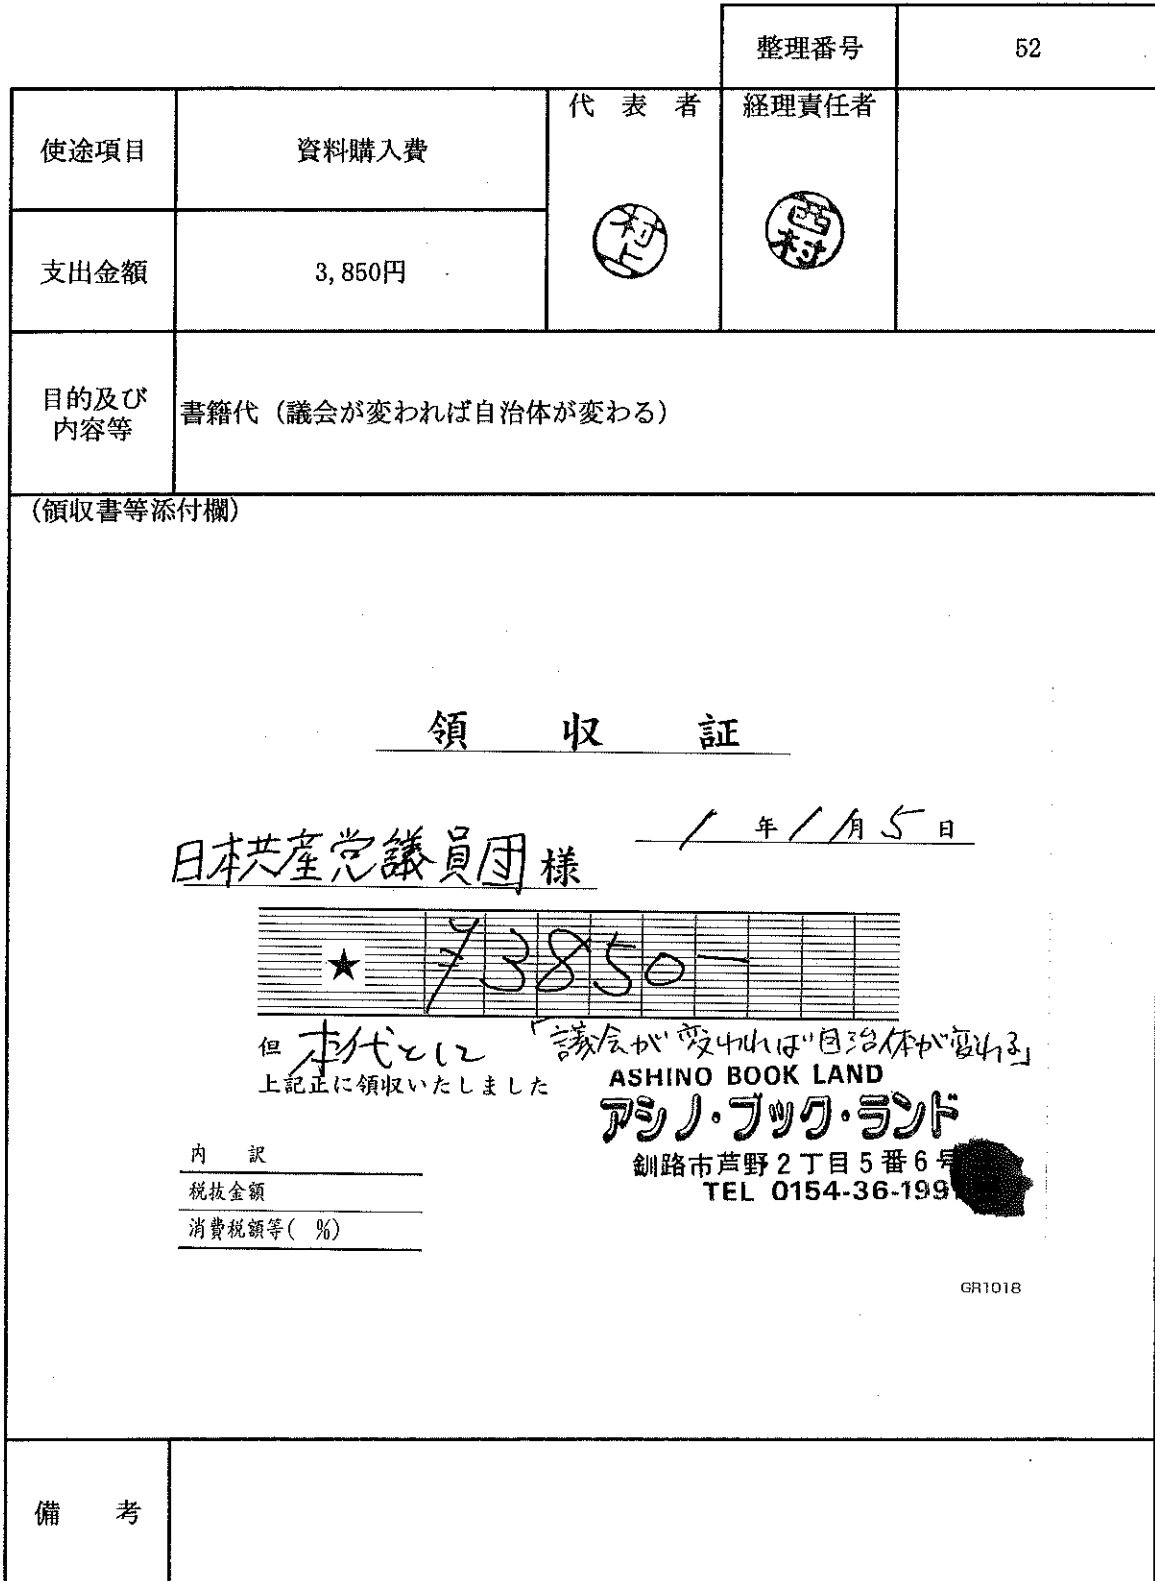 整理番号 52
代表者 経理責任者
使途項目 資料購入費
村上 西村
支出金額 3,850円
目的及び
内容等
書籍代（議会が変われば自治体が変わる）
(領収書等添付欄)
領収証
1年11月5日
日本共産党議員団様
★ ¥3850-
但 本代として 「議会が変われば自治体が変わる」
上記正に領収いたしました
ASHINO BOOK LAND
アシノ・ブック・ランド
釧路市芦野2丁目5番6号
TEL 0154-36-199
内訳
税抜金額
消費税額等( %)
GR1018
備考